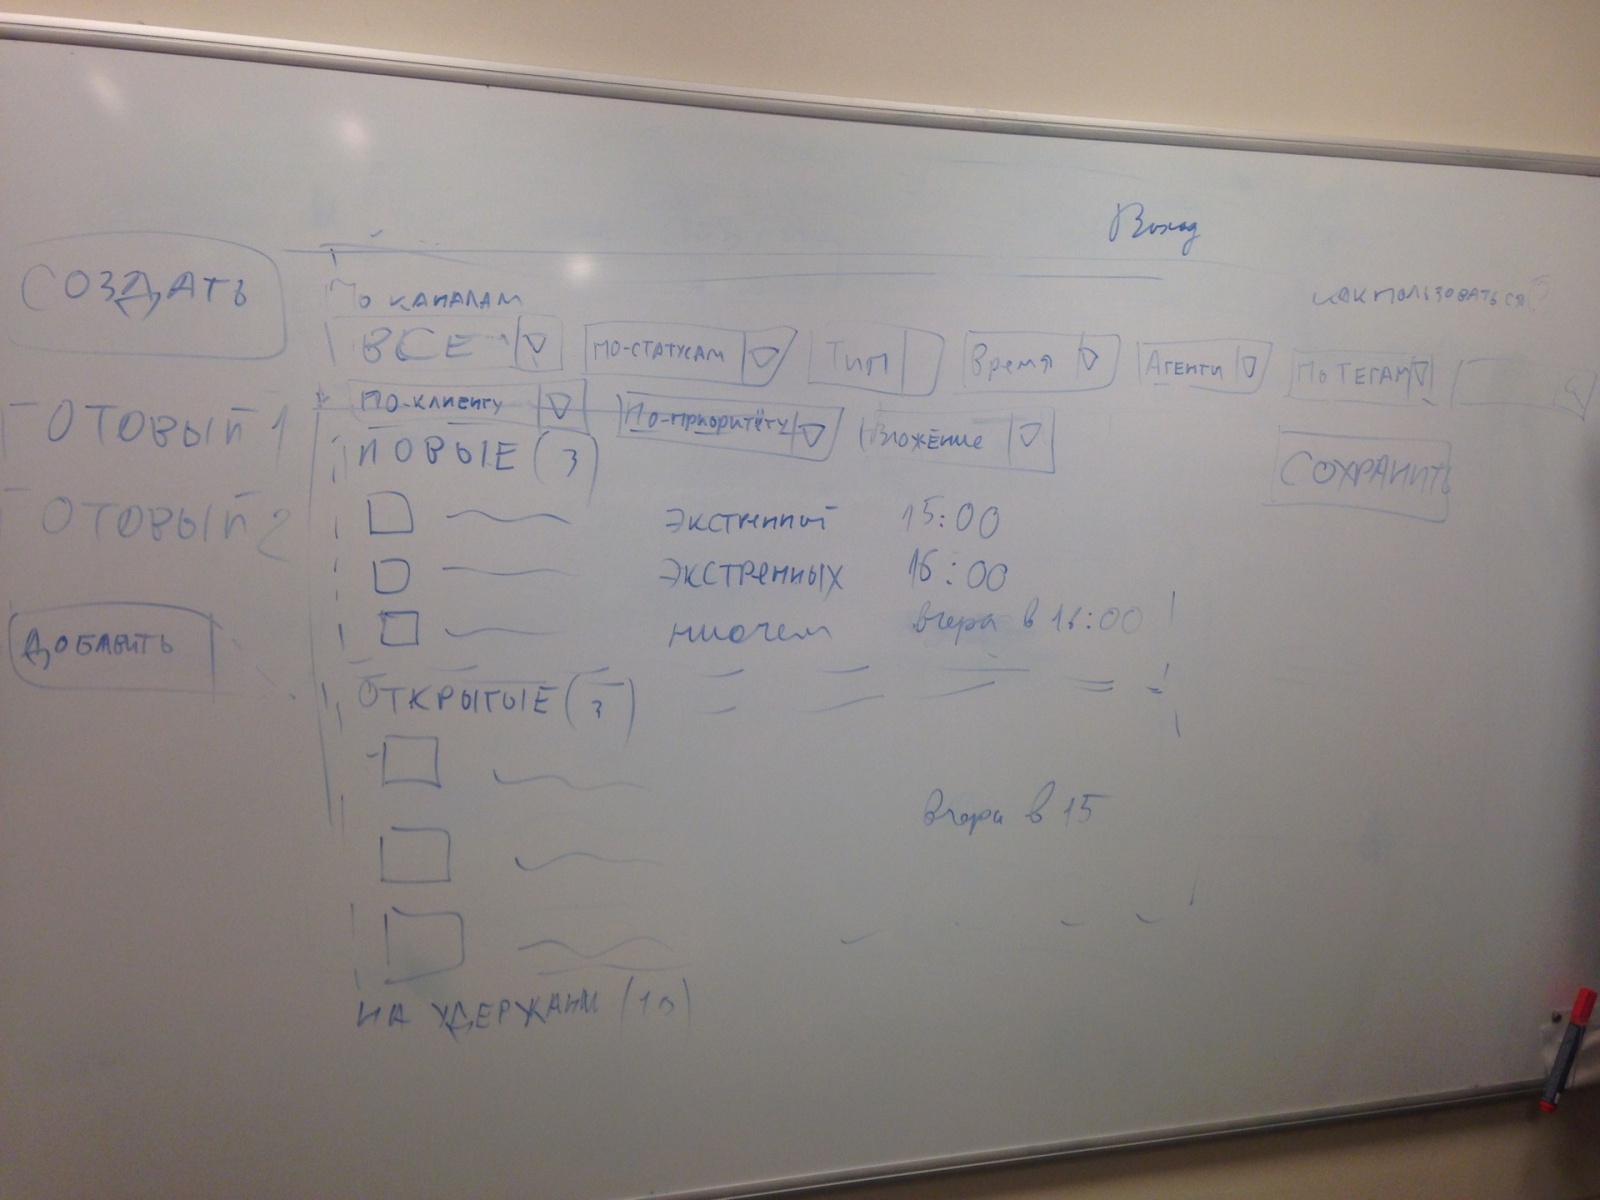 Выход
СОЗДАТЬ
ПО КАНАЛАМ
КАК ПОЛЬЗОВАТЬСЯ?
ВСЕ
ПО-СТАТУСАМ
ТИП
Время
АГЕНТЫ
ПО ТЕГАМ
ПО-КЛИЕНТУ
ПО-ПРИОРИТЕТУ
ВЛОЖЕНИЕ
ГОТОВЫЙ 1
НОВЫЕ (3)
СОХРАНИТЬ
ГОТОВЫЙ 2
ЭКСТРЕННЫЙ 15:00
ЭКСТРЕННЫХ 16:00
ДОБАВИТЬ
НИОЧЕМ вчера в 16:00
ОТКРЫТЫЕ (3)
вчера в 15
НА УДЕРЖАНИИ